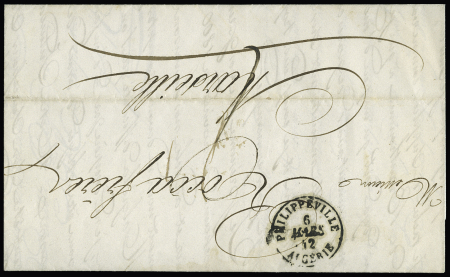 Messieurs
Rocca frères
Marseille
PHILIPPEVILLE
6
MARS
42
ALGERIE